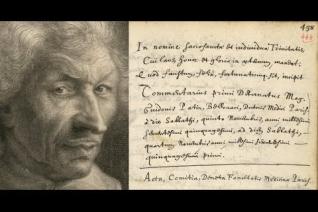 458
In nomine sacrosanctæ et individuæ Trinitatis
Cui laus, honor et gloria in æternum, mandet:
Quod faustum, felix, fortunatumque sit, incipit
Commentarius primi Decanatus Mag.
Guidonis Patin, Bellovaci, Doctoris Medici Paris.
à die Sabbathi, quinta Novembris, anni millesimi
sexcentesimi quinquagesimi, ad diem Sabbathi,
quartam Novembris anni millesimi sexcentesimi
quinquagesimi primi.
Acta, Comitia, Decreta Facultatis Medicinæ Paris.